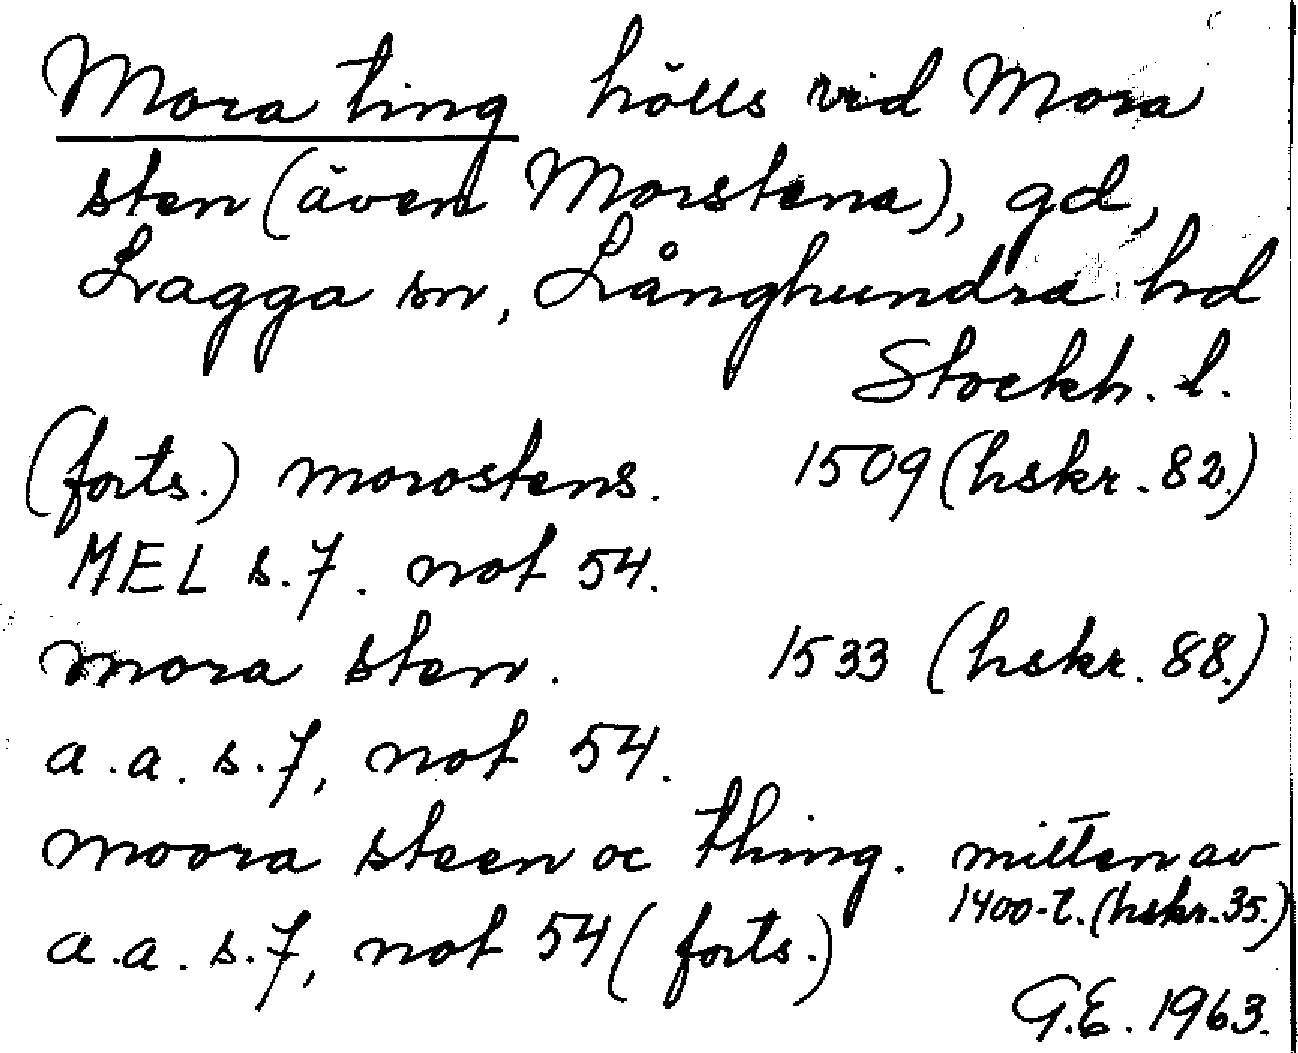 Mora ting hölls vid Mora
sten (även Morstena), gd,
Lagga sn, Långhundra hd
Stockh. l.
(forts.) morostens. 1509 (hskr. 82.)
MEL s. 7. not 54.
mora sten. 1533 (hskr. 88.)
a.a. s. 7, not 54.
moora steen oc thing. mitten av
1400-t. (hskr. 35.)
a.a. s. 7, not 54 (forts.)
G.E. 1963.